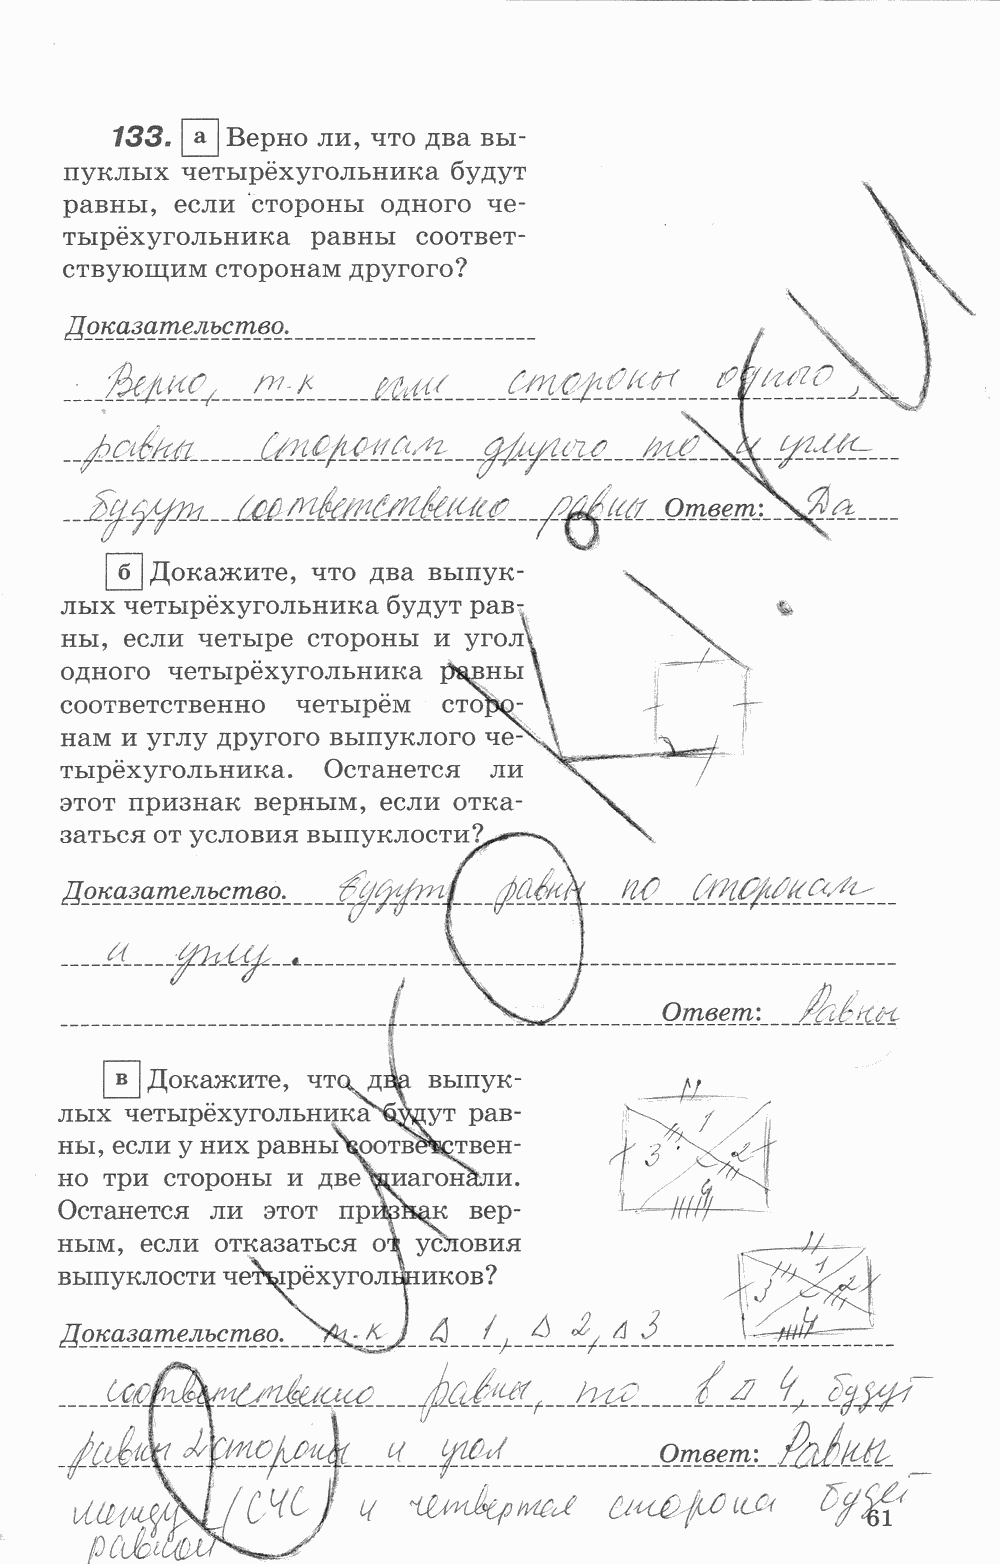 133. а Верно ли, что два вы-
пуклых четырёхугольника будут
равны, если стороны одного че-
тырёхугольника равны соответ-
ствующим сторонам другого?
Доказательство.
Верно, т.к если стороны одного,
равны сторонам другого то и углы
будут соответственно равны Ответ: Да
б Докажите, что два выпук-
лых четырёхугольника будут рав-
ны, если четыре стороны и угол
одного четырёхугольника равны
соответственно четырём сторо-
нам и углу другого выпуклого че-
тырёхугольника. Останется ли
этот признак верным, если отка-
заться от условия выпуклости?
Доказательство. будут равны по сторонам
и углу.
Ответ: Равны
в Докажите, что два выпук-
лых четырёхугольника будут рав-
ны, если у них равны соответствен-
но три стороны и две диагонали.
Останется ли этот признак вер-
ным, если отказаться от условия
выпуклости четырёхугольников?
1
3 2
4
1
3 2
4
Доказательство. т.к Δ 1, Δ 2, Δ 3
соответственно равны, то в Δ 4, будут
равны 2 стороны и угол Ответ: Равны
между (СЧС и четвертая сторона будет
равной
61